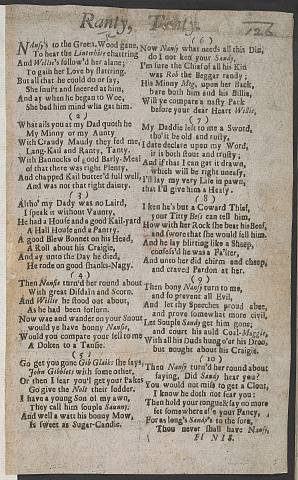 Ranty, Tanty.
126
Nansy's to the Green Wood gane,
To hear the Lintwhite chattring
And Willie's follow'd her alane;
To gain her Love by flattring.
But all that he could do or say,
She snuft and sneered at him,
And ay when he began to Woe,
She bad him mind wha gat him.
(2)
What ails you at my Dad quoth he
My Minny or my Aunty
With Craudy Maudy they fed me,
Lang-Kail and Ranty, Tanty.
With Bannocks of good Barly-Meal
of that there was right Plenty.
And chapped Kail butter'd full well,
And was not that right dainty.
(3)
Altho' my Dady was no Laird,
I speak it without Vaunty,
He had a House and a good Kail-yard
A Hall House and a Pantry.
A good Blew Bonnet on his Head,
A Roll about his Craigie,
And ay unto the Day he died,
He rode on good shanks-Nagy.
(4)
Then Nansie turn'd her round about
With great Disdain and Scorn.
And Willie he stood about,
As he had been forlorn.
Now wae and wander on your Snout
would ye have bonny Nansie,
Would you compare your self to me
A Docken to a Tansie.
(5)
Go get you gone Gib Glaiks she says,
John Gibblets with some other,
Or then I tear you'l get your Pakes
Go give the Nols their fodder.
I have a young Son of my awn,
They call him souple Saunny,
And well a watt his bonny Mow,
Is sweet as Sugar-Candie.
(6)
Now Nansy what needs all this Din,
do I not ken your Sandy,
I'm sure the Chief of all his Kin
was Rob the Beggar randy;
His Minny Meg, upon her Back,
bare both him and his Billie,
Will ye compare a nasty Pack
before your dear Heart Willie,
(7)
My Daddie left to me a Sword,
tho' it be old and rusty,
I date declare upon my Word,
it is both stout and trusty;
And if that I can get it drawn,
which will be right uneasy,
I'll lay my very Life in pawn,
that I'll give him a Heasy.
(8)
I ken he's but a Coward Thief,
your Titty Bess can tell him,
How with her Rock she beat his Beef,
and swore that she would fell him.
And he lay blirting like a Sheep,
confess'd he was a Fa'ter,
And unto her did chirm and cheep,
and craved Pardon at her.
(9)
Then bony Nansy turn to me,
and so prevent all Evil,
And let thy Speeches proud abee,
and prove somewhat more civil,
Let Souple Sandy get him gone;
and court his auld Coal-Maggie,
With all his Duds hung o'er his Droo,
but nought about his Craigie.
(10)
Then Nansy turn'd her round about
saying, Did Sandy hear you?
You would not miss to get a Clout,
I know he doth not fear you:
Then hold your tongue & say no more
set somewhere else your Fancy,
For as long's Sandy's to the fore,
Thou never shall have Nansy.
FINIS.